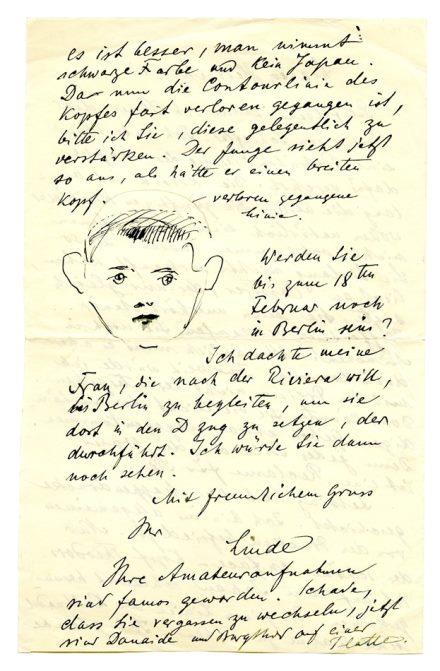 es ist besser, man nimmt
schwarze Farbe und kein Japan.
Da nun die Contourlinie des
Kopfes fast verloren gegangen ist,
bitte ich Sie, diese gelegentlich zu
verstärken. Der Junge sieht jetzt
so aus, als hätte er einen breiten
Kopf.
verloren gegangene
Linie.
Werden Sie
bis zum 18ten
Februar noch
in Berlin sein?
Ich dachte meine
Frau, die nach der Riviera will,
bis Berlin zu begleiten, um sie
dort in den D zug zu setzen, der
durchführt. Ich würde Sie dann
noch sehen.
Mit freundlichem Gruss
Ihr
Linde
Ihre Amateuraufnahmen
sind famos geworden. Schade,
dass Sie vergassen zu wechseln, jetzt
sind Danaide und auf einer
Platte.